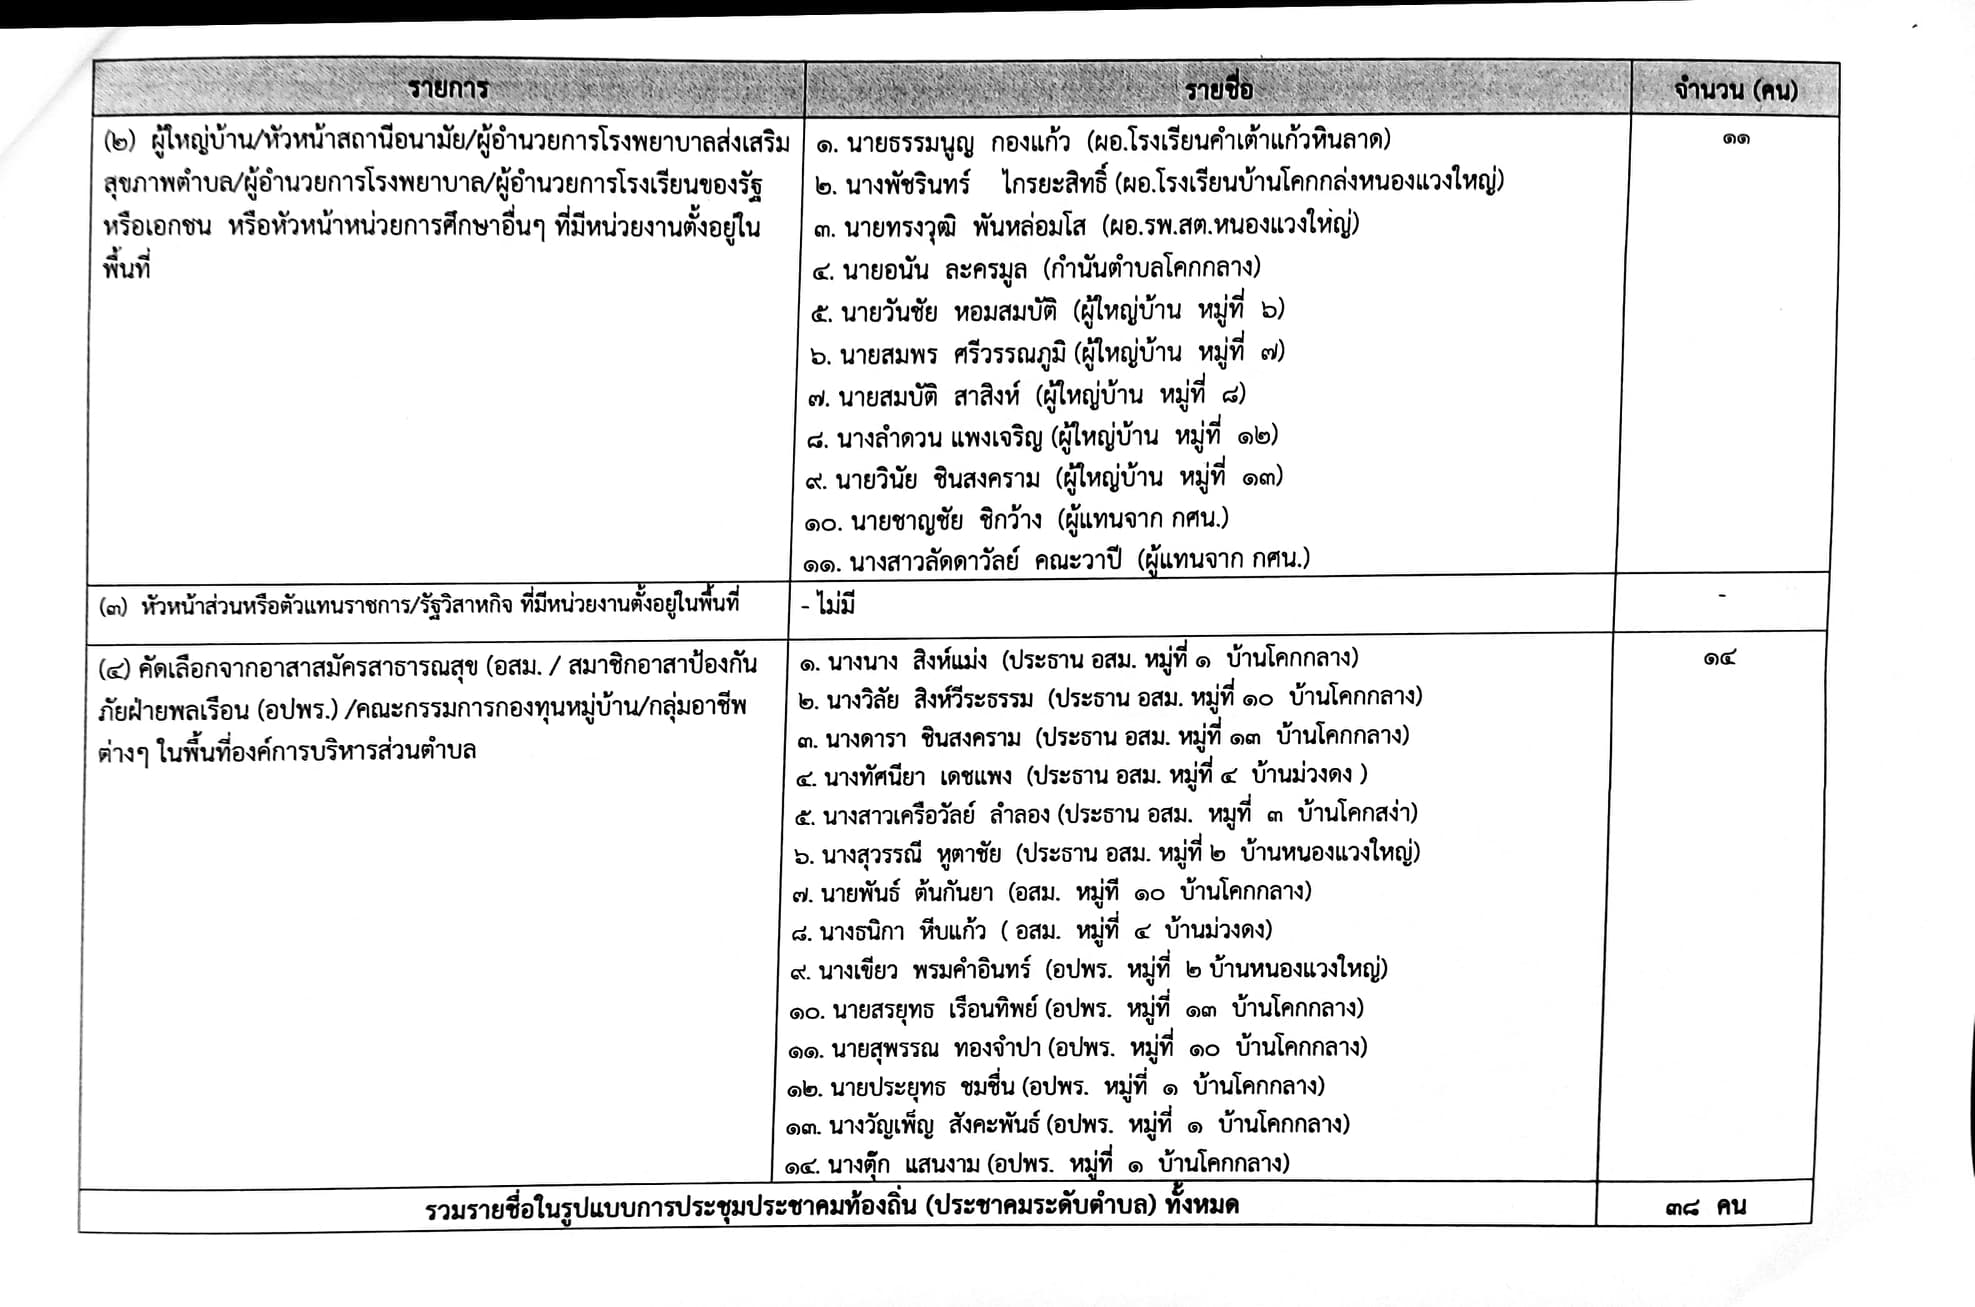 รายการ รายชื่อ จำนวน (คน)
(๒) ผู้ใหญ่บ้าน/หัวหน้าสถานีอนามัย/ผู้อำนวยการโรงพยาบาลส่งเสริม
สุขภาพตำบล/ผู้อำนวยการโรงพยาบาล/ผู้อำนวยการโรงเรียนของรัฐ
หรือเอกชน หรือหัวหน้าหน่วยการศึกษาอื่นๆ ที่มีหน่วยงานตั้งอยู่ใน
พื้นที่
๑. นายธรรมนูญ กองแก้ว (ผอ.โรงเรียนคำเต้าแก้วหินลาด)
๒. นางพัชรินทร์ ไกรยะสิทธิ์ (ผอ.โรงเรียนบ้านโคกกล่งหนองแวงใหญ่)
๓. นายทรงวุฒิ พันหล่อมโส (ผอ.รพ.สต.หนองแวงใหญ่)
๔. นายอนัน ละครมูล (กำนันตำบลโคกกลาง)
๕. นายวันชัย หอมสมบัติ (ผู้ใหญ่บ้าน หมู่ที่ ๖)
๖. นายสมพร ศรีวรรณภูมิ (ผู้ใหญ่บ้าน หมู่ที่ ๗)
๗. นายสมบัติ สาสิงห์ (ผู้ใหญ่บ้าน หมู่ที่ ๘)
๘. นางลำดวน แพงเจริญ (ผู้ใหญ่บ้าน หมู่ที่ ๑๒)
๙. นายวินัย ชินสงคราม (ผู้ใหญ่บ้าน หมู่ที่ ๑๓)
๑๐. นายชาญชัย ชิกว้าง (ผู้แทนจาก กศน.)
๑๑. นางสาวลัดดาวัลย์ คณะวาปี (ผู้แทนจาก กศน.)
๑๑
(๓) หัวหน้าส่วนหรือตัวแทนราชการ/รัฐวิสาหกิจ ที่มีหน่วยงานตั้งอยู่ในพื้นที่
- ไม่มี
-
(๔) คัดเลือกจากอาสาสมัครสาธารณสุข (อสม. / สมาชิกอาสาป้องกัน
ภัยฝ่ายพลเรือน (อปพร.) /คณะกรรมการกองทุนหมู่บ้าน/กลุ่มอาชีพ
ต่างๆ ในพื้นที่องค์การบริหารส่วนตำบล
๑. นางนาง สิงห์แม่ง (ประธาน อสม. หมู่ที่ ๑ บ้านโคกกลาง)
๒. นางวิลัย สิงห์วีระธรรม (ประธาน อสม. หมู่ที่ ๑๐ บ้านโคกกลาง)
๓. นางดารา ชินสงคราม (ประธาน อสม. หมู่ที่ ๑๓ บ้านโคกกลาง)
๔. นางทัศนียา เดชแพง (ประธาน อสม. หมู่ที่ ๔ บ้านม่วงดง )
๕. นางสาวเครือวัลย์ ลำลอง (ประธาน อสม. หมูที่ ๓ บ้านโคกสง่า)
๖. นางสุวรรณี หูตาชัย (ประธาน อสม. หมู่ที่ ๒ บ้านหนองแวงใหญ่)
๗. นายพันธ์ ต้นกันยา (อสม. หมู่ที ๑๐ บ้านโคกกลาง)
๘. นางธนิกา หีบแก้ว ( อสม. หมู่ที่ ๔ บ้านม่วงดง)
๙. นางเขียว พรมคำอินทร์ (อปพร. หมู่ที่ ๒ บ้านหนองแวงใหญ่)
๑๐. นายสรยุทธ เรือนทิพย์ (อปพร. หมู่ที่ ๑๓ บ้านโคกกลาง)
๑๑. นายสุพรรณ ทองจำปา (อปพร. หมู่ที่ ๑๐ บ้านโคกกลาง)
๑๒. นายประยุทธ ชมชื่น (อปพร. หมู่ที่ ๑ บ้านโคกกลาง)
๑๓. นางวัญเพ็ญ สังคะพันธ์ (อปพร. หมู่ที่ ๑ บ้านโคกกลาง)
๑๔. นางตุ๊ก แสนงาม (อปพร. หมู่ที่ ๑ บ้านโคกกลาง)
๑๔
รวมรายชื่อในรูปแบบการประชุมประชาคมท้องถิ่น (ประชาคมระดับตำบล) ทั้งหมด ๓๘ คน